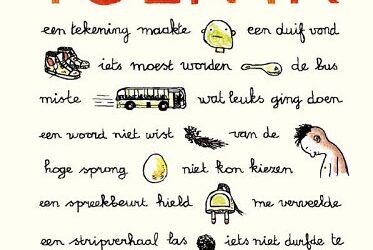 een tekening maakte een duif vond
iets moest worden de bus
miste wat leuks ging doen
een woord niet wist van de
hoge sprong niet kon kiezen
een spreekbeurt hield me verveelde
een stripverhaal las iets niet durfde te